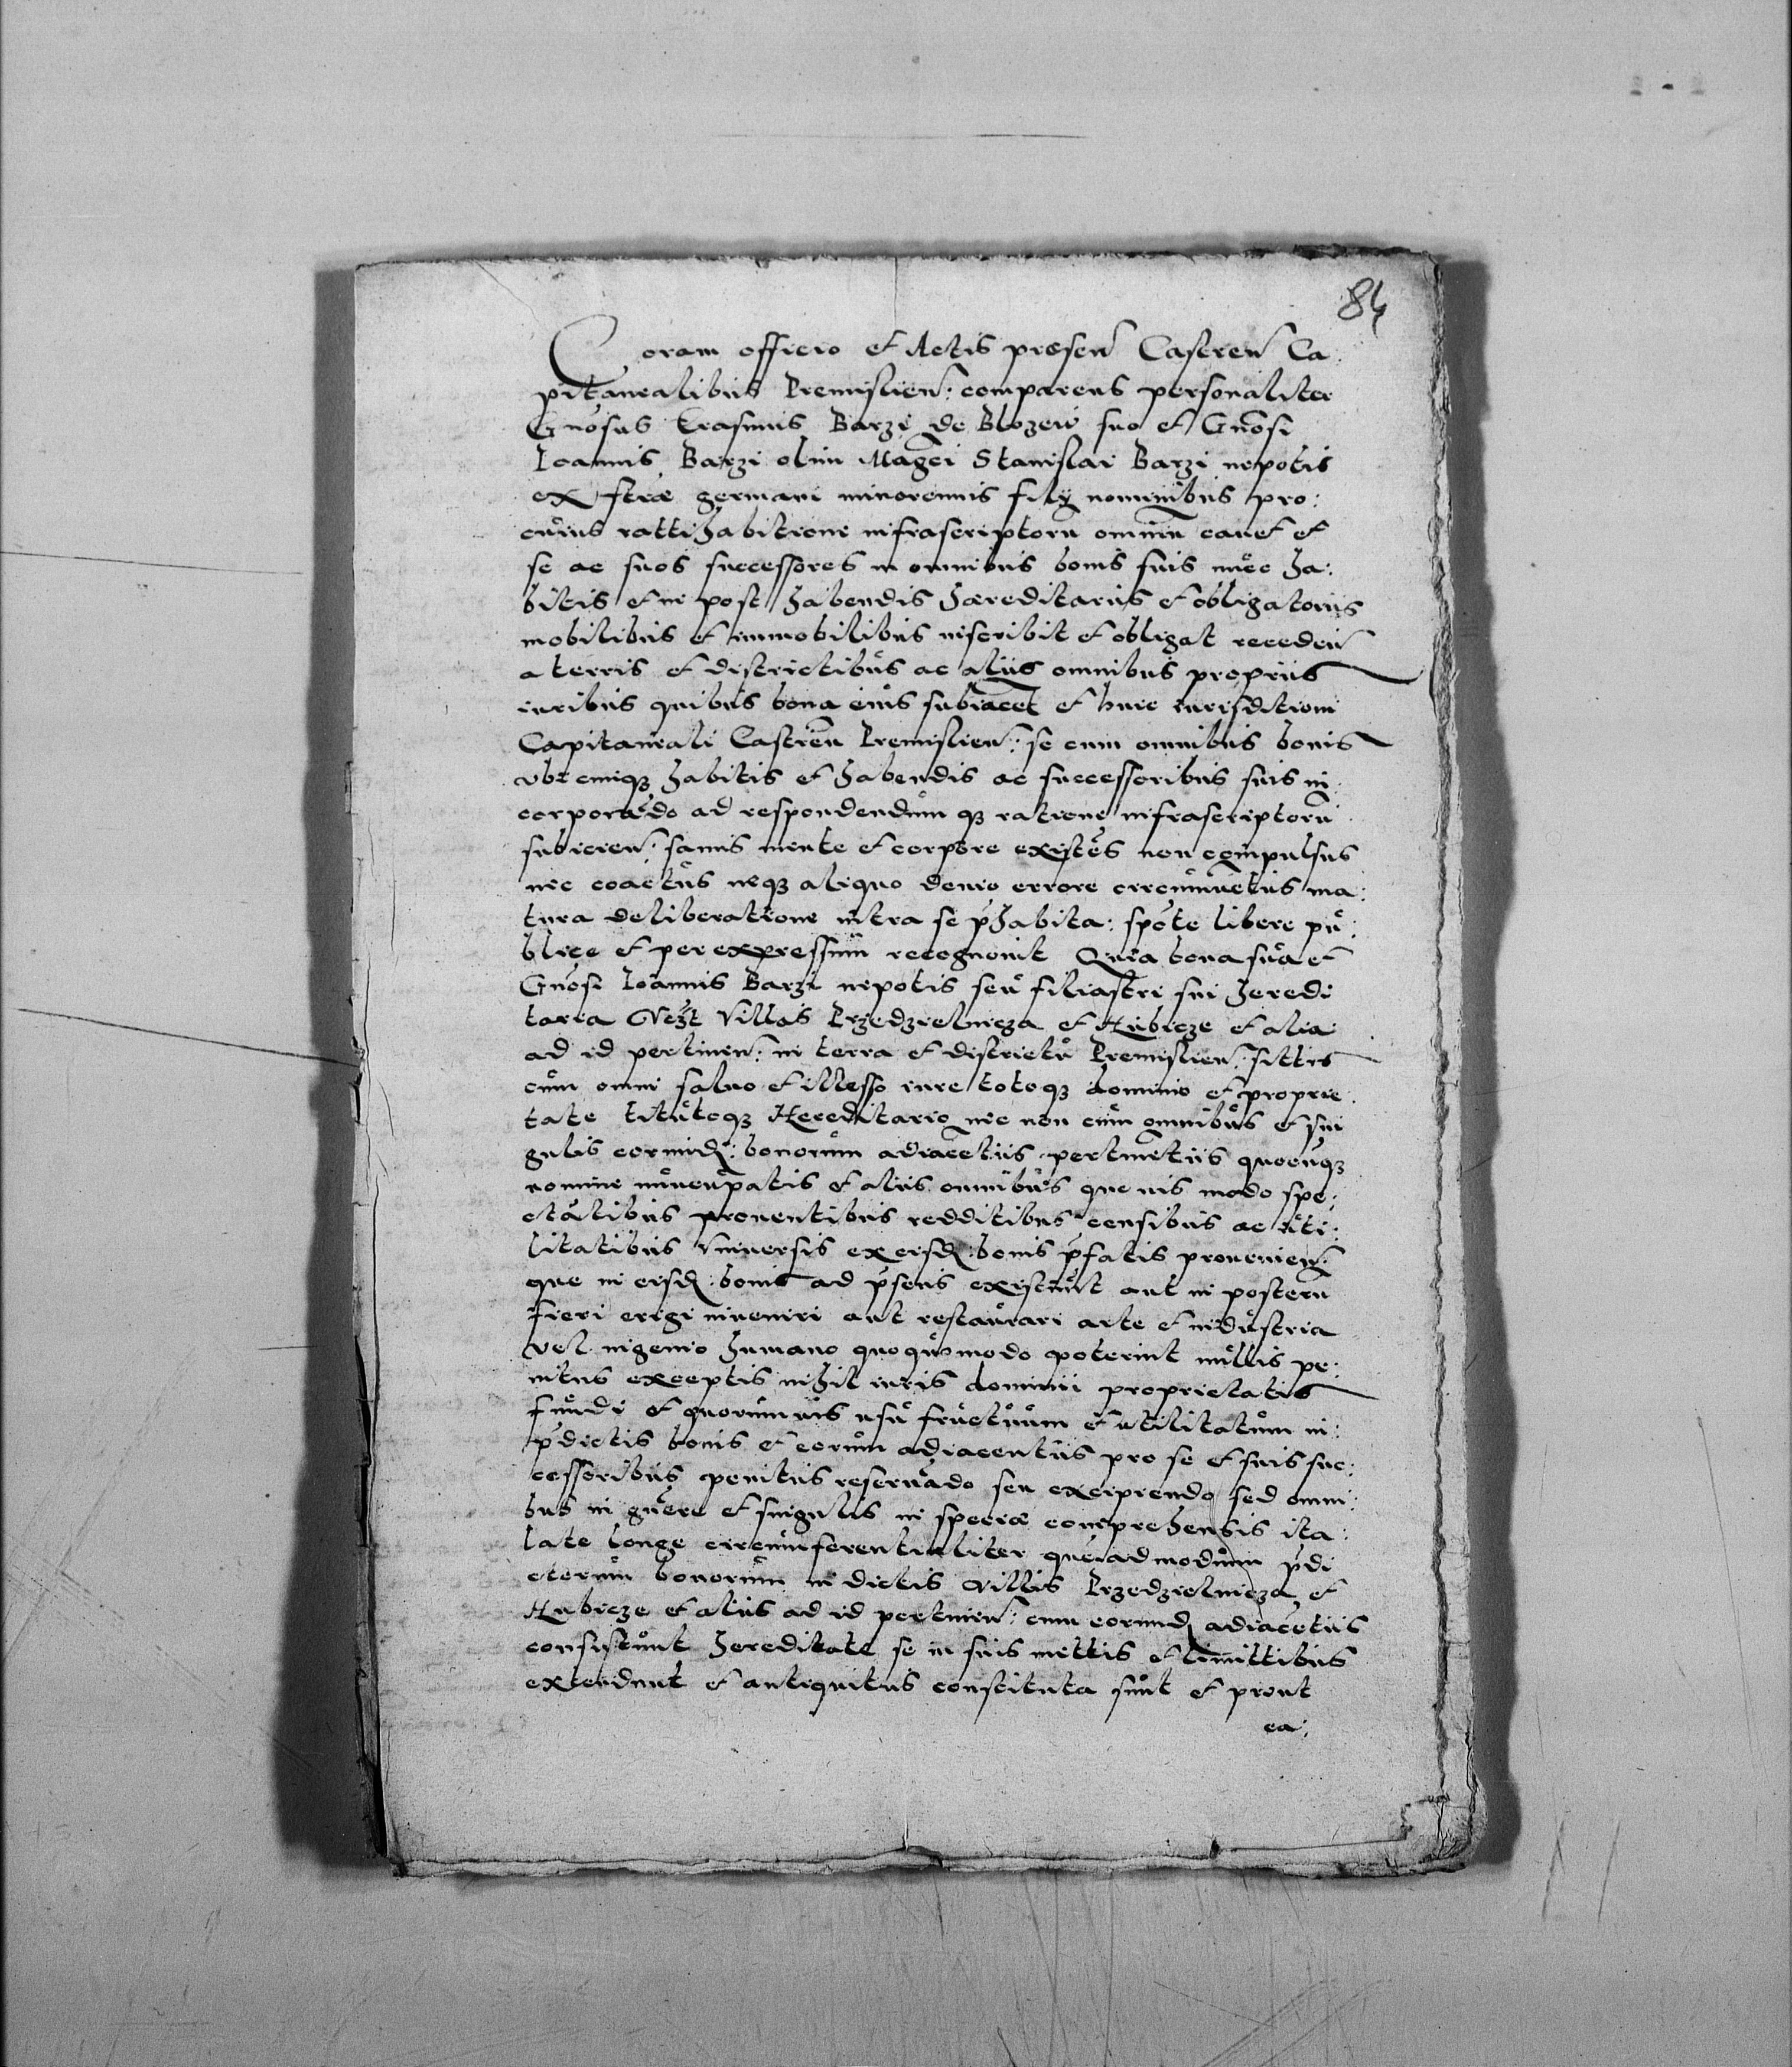 84
Coram officio et Actis præsen̄ Castren̄ Ca:
pitanealibus Premislien̄: comparens personaliter
Gn̄osus Erasmus Barzi de Blozew suo et Gn̄osi
Ioannis Barzi olim Maḡci Stanislai Barzi nepotis
ex fr̄æ germani minorennis filÿ nominibus pro:
cuius rattihabitione infrascriptorū omniū cauet et
se ac suos successores in omnibus bonis suis nūc ha:
bitis et in post habendis hæreditariis et obligatoriis
mobilibus et immobilibus inscribit et obligat receden̄
a terris et districtibus ac aliis omnibus propriis
iuribus quibus bona eius subiacēt et huic iurisditioni
Capitaneali Castren̄ Premislien̄: se cum omnibus bonis
vbicunqȝ habitis et habendis ac successoribus suis in
corporādo ad respondendum qȝ ratione infrascriptorū
subiicien̄: sanus mente et corpore existēs non compulsus
nec coactus neqȝ aliquo deuio errore circumuētus ma:
tura deliberatione intra se p̄habita: spōte libere pu:
blice et per expressum recognouit Quia bona sua et
Gn̄osi Ioannis Barzi nepotis seu filiastri sui heredi
taria Vczt Villas Przedzielnicza et Hubicze et alia
ad id pertinen̄: in terra et districtu Premislien̄: sittis
cum omni saluo et illesso iure totoqȝ dominio et proprie
tate tituloqȝ Hereditario nec non cum omnibus et sin
gulis eorund̄: bonorum adiacētiis pertinētiis quocūqȝ
nomine nuncupatis et aliis omnibus que uis modo spe:
ctātibus prouentibus redditibus censibus ac uti:
litatibus Vniuersis ex eisd̄: bonis p̄fatis prouenien̄
que in eisd̄: bonis ad p̄sens existunt aut in posterū
fieri erigi inueniri aut restaurari arte et industria
vel ingenio humano quoquomodo poterint nullis pe:
nitus exceptis nihil iuris dominii proprietatis
fundi et quorumuis usu fructuum et utilitatum in:
p̄dictis bonis et eorum adiacentiis pro se et suis suc:
cessoribus penitus reseruādo seu excipiendo sed omni:
bus in gn̄ere et singulis in speciæ comprehensis ita
late longe circumferentialiter quēadmodum p̄di
ctorum bonorum in dictis villis Przedzielnicza et
Hubicze et aliis ad id pertinen̄: cum eorund̄ adiacētiis
consistunt hereditate se in suis mettis et limittibus
extendunt et antiquitus constituta sunt et prout
ea: